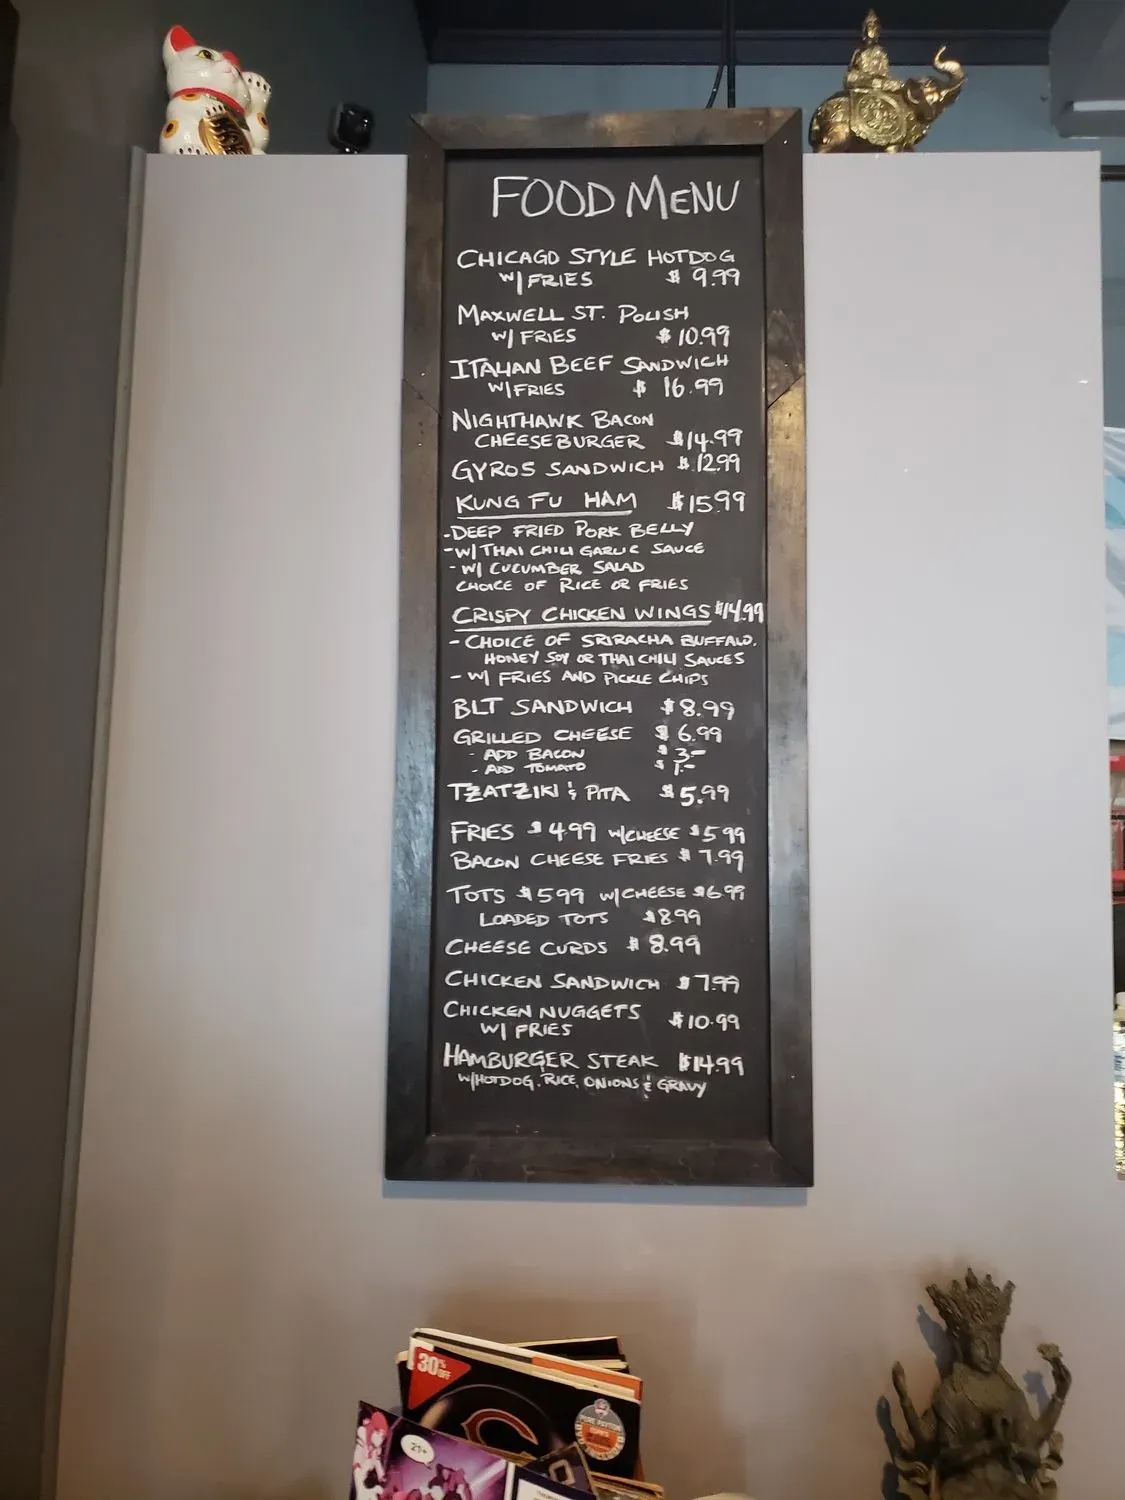 FOOD MENU
CHICAGO STYLE HOTDOG
W/ FRIES $ 9.99
MAXWELL ST. POLISH
W/ FRIES $ 10.99
ITALIAN BEEF SANDWICH
W/ FRIES $ 16.99
NIGHTHAWK BACON
CHEESEBURGER $14.99
GYROS SANDWICH $ 12.99
KUNG FU HAM $15.99
-DEEP FRIED PORK BELLY
-W/ THAI CHILI GARLIC SAUCE
- W/ CUCUMBER SALAD
CHOICE OF RICE OR FRIES
CRISPY CHICKEN WINGS $14.99
- CHOICE OF SRIRACHA BUFFALO,
HONEY SOY OR THAI CHILI SAUCES
- W/ FRIES AND PICKLE CHIPS
BLT SANDWICH $8.99
GRILLED CHEESE $ 6.99
- ADD BACON $ 3-
- ADD TOMATO $ 1.-
TZATZIKI & PITA $5.99
FRIES $ 4.99 W/CHEESE $5.99
BACON CHEESE FRIES $ 7.99
TOTS $5.99 W/CHEESE $6.99
LOADED TOTS $8.99
CHEESE CURDS $ 8.99
CHICKEN SANDWICH $7.99
CHICKEN NUGGETS
W/ FRIES $10.99
HAMBURGER STEAK $14.99
W/HOTDOG, RICE, ONIONS & GRAVY
30% OFF
21+